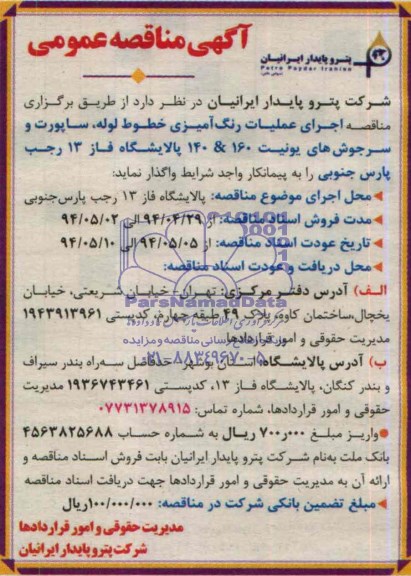 آگهی مناقصه عمومی
پترو پایدار ایرانیان
Petro Paydar Iranian
شرکت پترو پایدار ایرانیان در نظر دارد از طریق برگزاری
مناقصه اجرای عملیات رنگ‌آمیزی خطوط لوله، ساپورت و
سرجوش‌های یونیت ۱۶۰ & ۱۴۰ پالایشگاه فاز ۱۳ رجب
پارس جنوبی را به پیمانکار واجد شرایط واگذار نماید:
محل اجرای موضوع مناقصه: پالایشگاه فاز ۱۳ رجب پارس‌جنوبی
مدت فروش اسناد مناقصه: از ۹۴/۰۴/۲۹ الی ۹۴/۰۵/۰۲
تاریخ عودت اسناد مناقصه: از ۹۴/۰۵/۰۵ الی ۹۴/۰۵/۱۰
محل دریافت و عودت اسناد مناقصه:
الف) آدرس دفتر مرکزی: تهران، خیابان شریعتی، خیابان
یخچال، ساختمان کاوه، پلاک ۴۹ طبقه چهارم، کدپستی ۱۹۴۳۹۱۳۹۶۱
مدیریت حقوقی و امور قراردادها
ب) آدرس پالایشگاه: استان بوشهر، حدفاصل سه‌راه بندر سیراف
و بندر کنگان، پالایشگاه فاز ۱۳، کدپستی ۱۹۳۶۷۴۳۴۶۱ مدیریت
حقوقی و امور قراردادها، شماره تماس: ۰۷۷۳۱۳۷۸۹۱۵
واریز مبلغ ۷۰۰٫۰۰۰ ریال به شماره حساب ۴۵۶۳۸۲۵۶۸۸
بانک ملت به‌نام شرکت پترو پایدار ایرانیان بابت فروش اسناد مناقصه و
ارائه آن به مدیریت حقوقی و امور قراردادها جهت دریافت اسناد مناقصه
مبلغ تضمین بانکی شرکت در مناقصه: ۱۰۰/۰۰۰/۰۰۰ ریال
مدیریت حقوقی و امور قراردادها
شرکت پترو پایدار ایرانیان
ParsNamadData
۰۲۱-۸۸۳۴۹۶۷۰-۵